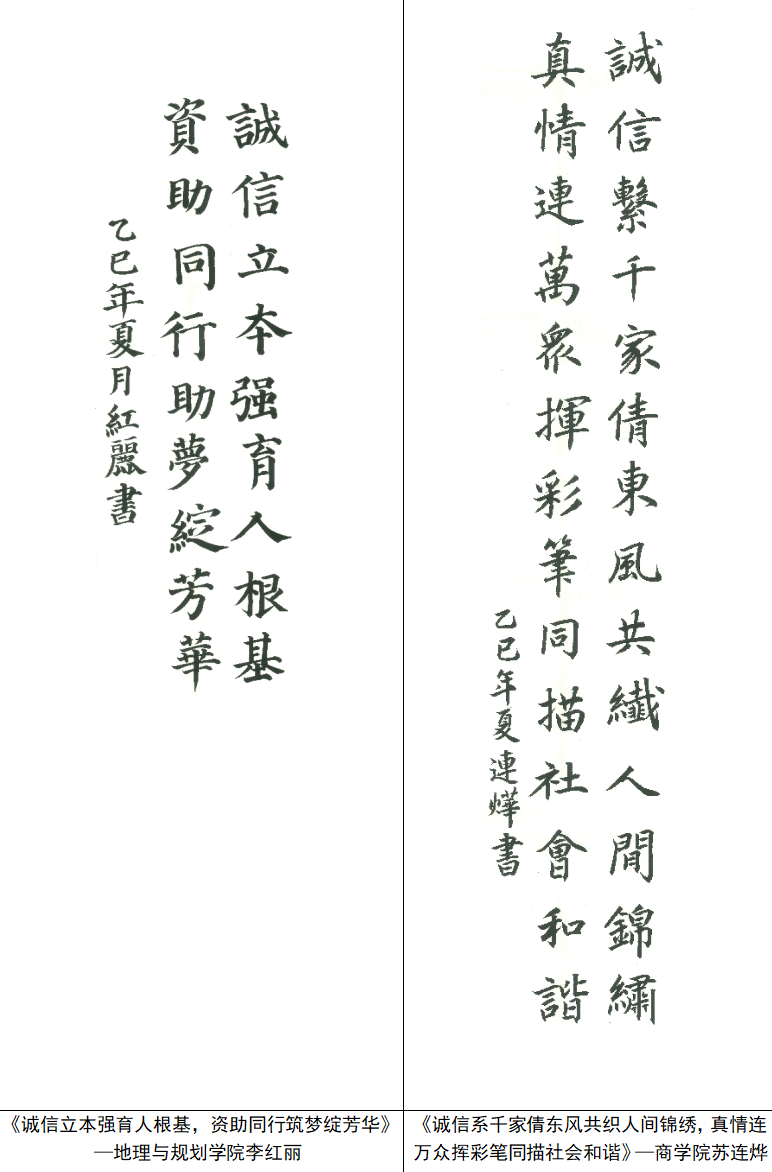 誠信立本强育人根基
資助同行助夢綻芳華
乙巳年夏月紅麗書
誠信繫千家倩東風共纖人間錦繡
真情連萬眾揮彩筆同描社會和諧
乙巳年夏連燁書
《诚信立本强育人根基，资助同行筑梦绽芳华》
—地理与规划学院李红丽
《诚信系千家倩东风共织人间锦绣，真情连
万众挥彩笔同描社会和谐》—商学院苏连烨